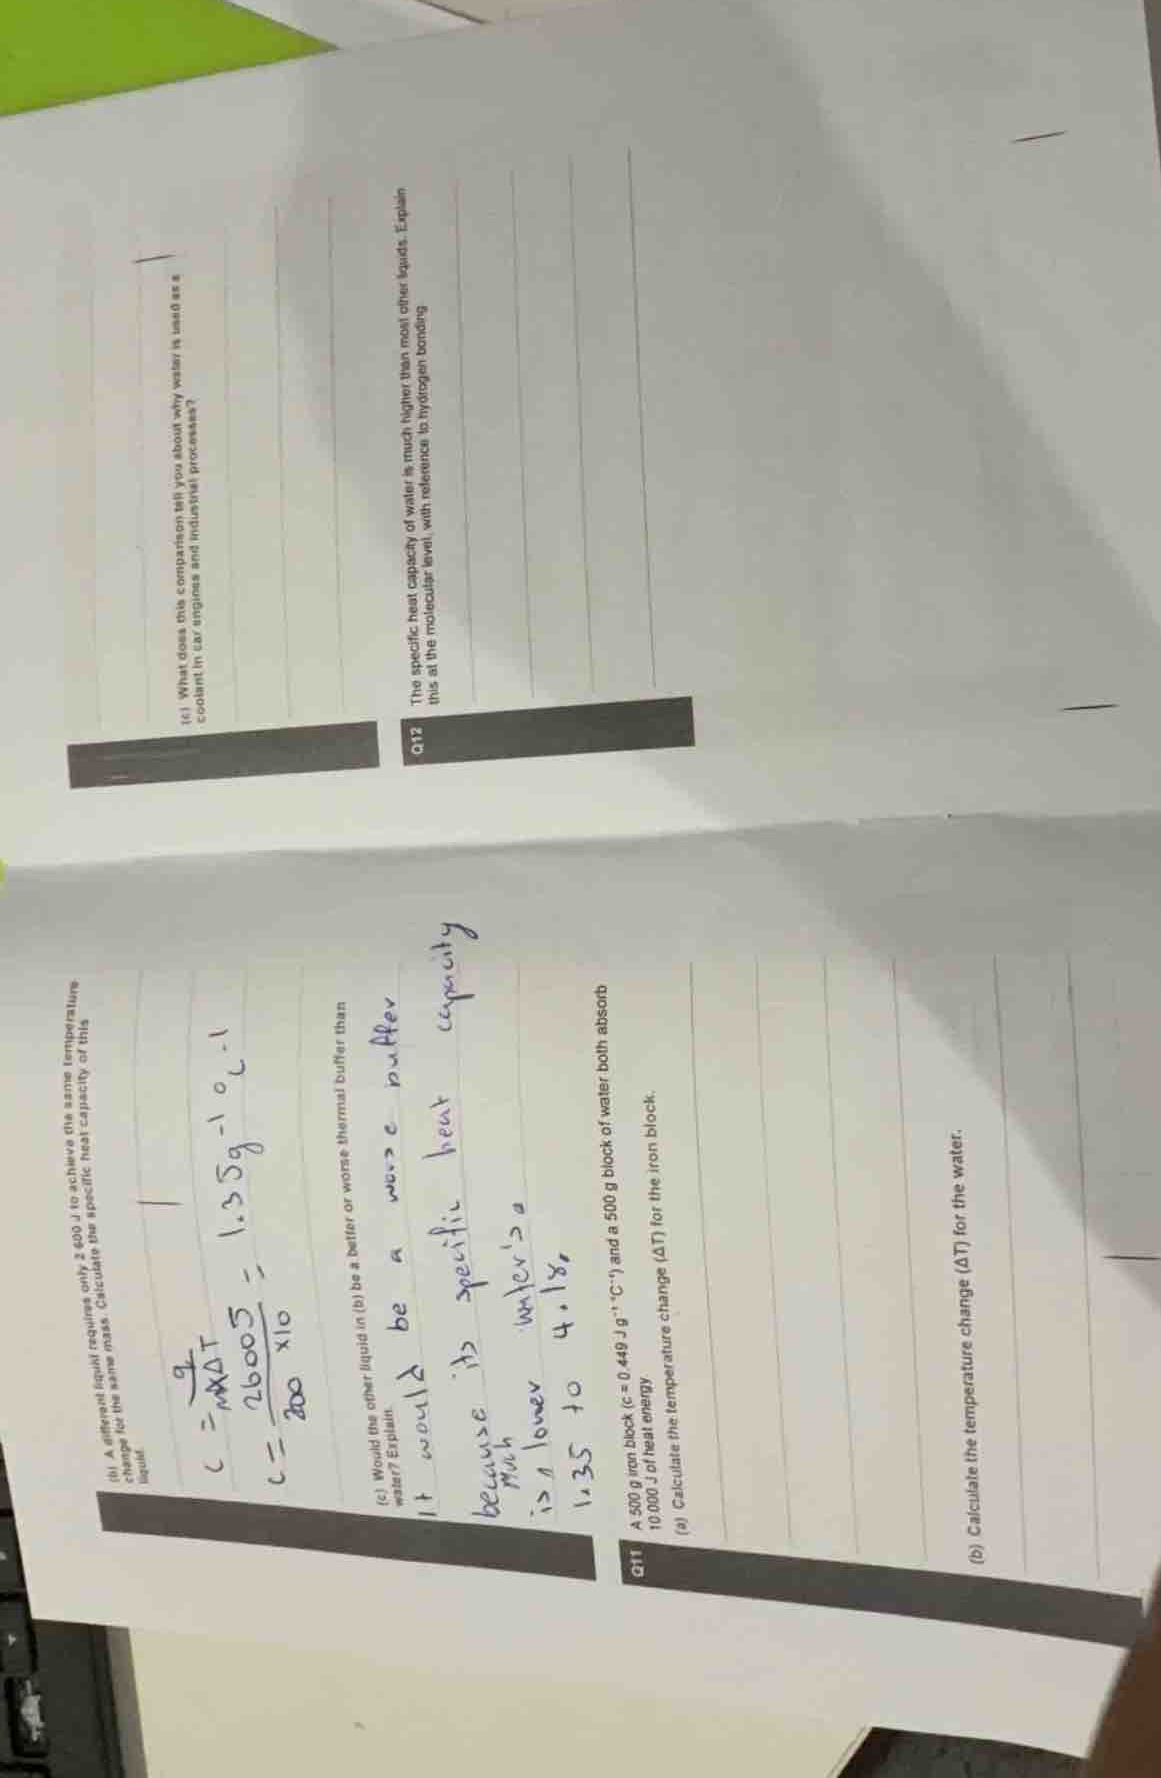 (b) A different liquid requires only 2 600 J to achieve the same temperature
change for the same mass. Calculate the specific heat capacity of this
liquid.
c = q
m×ΔT
c = 2600J = 1.35g⁻¹ °C⁻¹
200 ×10
(c) Would the other liquid in (b) be a better or worse thermal buffer than
water? Explain.
It would be a worse buffer
because its specific heat capacity
is much lower water's.
1.35 to 4.18.
Q11 A 500 g iron block (c = 0.449 J g⁻¹ °C⁻¹) and a 500 g block of water both absorb
10 000 J of heat energy
(a) Calculate the temperature change (ΔT) for the iron block.
(b) Calculate the temperature change (ΔT) for the water.
(c) What does this comparison tell you about why water is used as a
coolant in car engines and industrial processes?
Q12 The specific heat capacity of water is much higher than most other liquids. Explain
this at the molecular level, with reference to hydrogen bonding